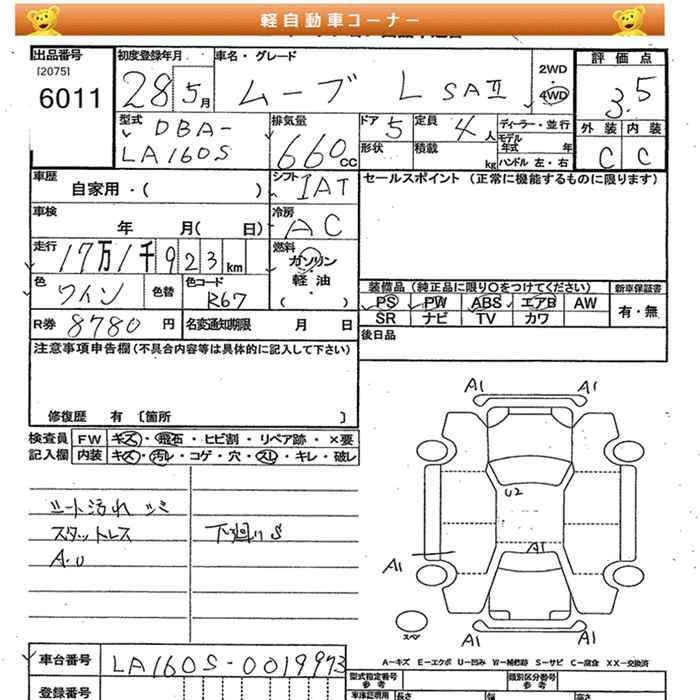 軽自動車コーナー
出品番号
[2075]
6011
初度登録年月
28 5月
車名・グレード
ムーブ L SAⅡ
2WD
・
4WD
評価点
3.5
外装 内装
C C
型式
DBA-
LA160S
排気量
660cc
ドア 5
定員 4人
ディーラー・並行
モデル年式 年
形状
積載 kg
ハンドル 左・右
車歴
自家用・( )
シフト
IAT
セールスポイント (正常に機能するものに限ります)
車検
年 月( 日)
冷房
AC
走行
17万1千923km
燃料
ガソリン
・
軽油
( )
色
ワイン
色替
色コード
R67
R券 8780円
名変通知期限 月 日
装備品(純正品に限り○をつけてください)
新車保証書
PS PW ABS エアB AW
SR ナビ TV カワ
有・無
後日品
注意事項申告欄(不具合内容等は具体的に記入して下さい)
修復歴 有 〔箇所 〕
検査員
記入欄
FW キズ・飛石・ヒビ割・リペア跡・×要
内装 キズ・汚レ・コゲ・穴・スレ・キレ・破レ
シート汚れ シミ
スタットレス
A.U
下廻りS
A1 A1
U2
A1
A1
A1 A1
スペア
A-キズ E-エクボ U-凹み W-補修跡 S-サビ C-腐食 XX-交換済
車台番号
LA160S-0019973
登録番号
型式指定番号
参考
類別区分番号
参考
車庫証明用
長さ
幅
高さ